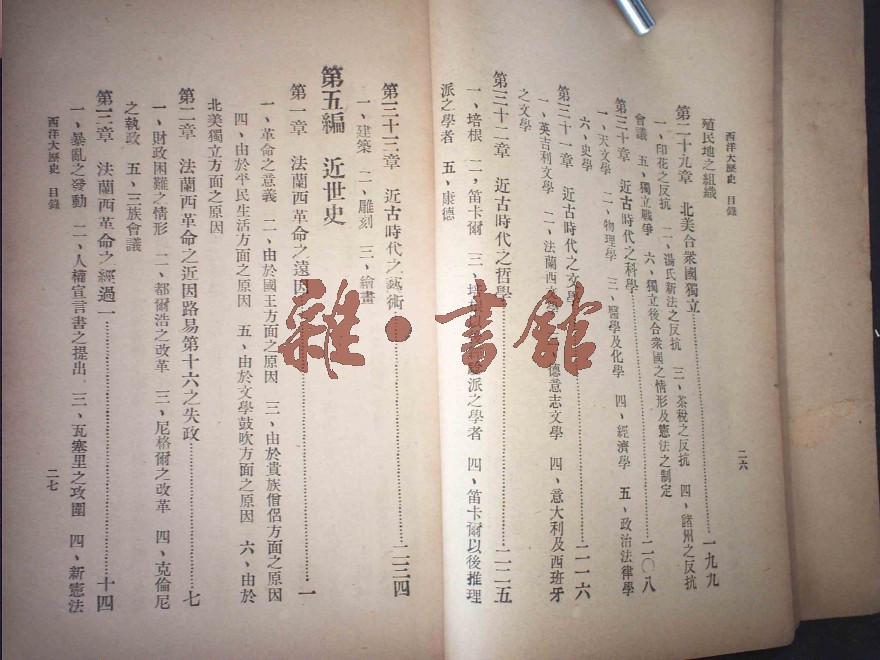 西洋大歷史　目錄
二六
殖民地之組織
第二十九章　北美合衆國獨立………一九九
一、印花之反抗　二、湯氏新法之反抗　三、茶稅之反抗　四、諸州之反抗
會議　五、獨立戰爭　六、獨立後合衆國之情形及憲法之制定
第三十章　近古時代之科學………二〇八
一、天文學　二、物理學　三、醫學及化學　四、經濟學　五、政治法律學
六、史學
第三十一章　近古時代之文學………二一六
一、英吉利文學　二、法蘭西文學　三、德意志文學　四、意大利及西班牙
之文學
第三十二章　近古時代之哲學………二二五
一、培根　二、笛卡爾　三、培根　派之學者　四、笛卡爾以後推理
派之學者　五、康德
第三十三章　近古時代之藝術………二三四
一、建築　二、雕刻　三、繪畫
第五編　近世史
第一章　法蘭西革命之遠因………一
一、革命之意義　二、由於國王方面之原因　三、由於貴族僧侶方面之原因
四、由於平民生活方面之原因　五、由於文學鼓吹方面之原因　六、由於
北美獨立方面之原因
第二章　法蘭西革命之近因路易第十六之失政………七
一、財政困難之情形　二、都爾浩之改革　三、尼格爾之改革　四、克倫尼
之執政　五、三族會議
第三章　法蘭西革命之經過一………十四
一、暴亂之發動　二、人權宣言書之提出　三、瓦塞里之攻圍　四、新憲法
西洋大歷史　目錄
二七
雜·書館